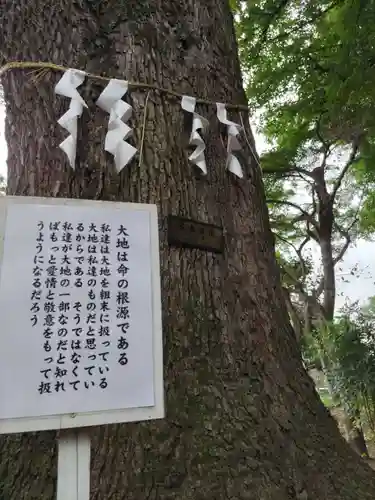 大地は命の根源である
私達は大地を粗末に扱っている
大地は私達のものだと思ってい
るからである　そうではなくて
私達が大地の一部なのだと知れ
ばもっと愛情と敬意をもって扱
うようになるだろう